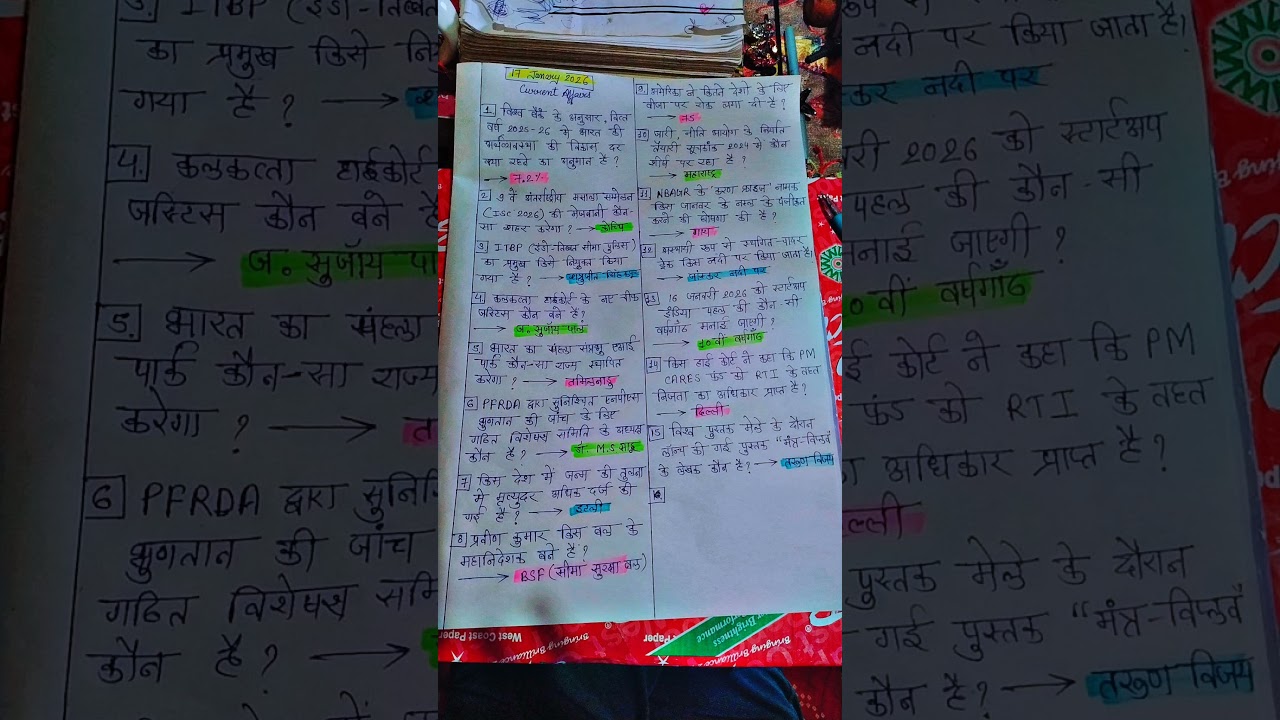 17 January 2026
Current Affairs
1. विश्व बैंक के अनुसार, वित्त
वर्ष 2025-26 में भारत की
अर्थव्यवस्था की विकास दर
क्या रहने का अनुमान है ?
→ 7.2%
2. 9 वें अंतर्राष्ट्रीय मसाला सम्मेलन
(ISC 2026) की मेजबानी कौन-
सा शहर करेगा ? → कोच्चि
3. ITBP (इंडो-तिब्बत सीमा पुलिस)
का प्रमुख किसे नियुक्त किया
गया है ? →
4. कलकत्ता हाईकोर्ट के नए चीफ
जस्टिस कौन बने है ?
→ ज. सुजॉय पाल
5. भारत का पहला संप्रभु एआई
पार्क कौन-सा राज्य स्थापित
करेगा ? → तमिलनाडु
6 PFRDA द्वारा सुनिश्चित एनपीएस
भुगतान की जांच के लिए
गठित विशेषज्ञ समिति के अध्यक्ष
कौन है ? → डॉ. M.S साहू
7. किस देश में जन्म की तुलना
में मृत्युदर अधिक दर्ज की
गई है ? →
8. प्रवीण कुमार किस बल के
महानिदेशक बने है ?
→ BSF (सीमा सुरक्षा बल)
9. अमेरिका ने कितने देशों के लिए
वीजा पर रोक लगा दी है ?
→ 75
10. जारी, नीति आयोग के निर्यात
तैयारी सूचकांक 2024 में कौन
शीर्ष पर रहा है ?
→ महाराष्ट्र
11. NBAGR के नामक
किस जानवर के नस्ल के पंजीकृत
करने की घोषणा की है ?
→ गाय
12. अस्थायी रूप से स्थापित-चादर
ट्रेक किस नदी पर किया जाता है।
→ जांस्कर नदी पर
13. 16 जनवरी 2026 को स्टार्टअप
इंडिया पहल की कौन-सी
वर्षगाँठ मनाई जाएगी ?
→ 10वीं वर्षगाँठ
14. किस हाई कोर्ट ने कहा कि PM
CARES फंड को RTI के तहत
निजता का अधिकार प्राप्त है ?
→ दिल्ली
15. विश्व पुस्तक मेले के दौरान
लॉन्च की गई पुस्तक "मंत्र-विप्लव"
के लेखक कौन है? → तरुण विजय
West Coast Paper
Bringing Brilliance